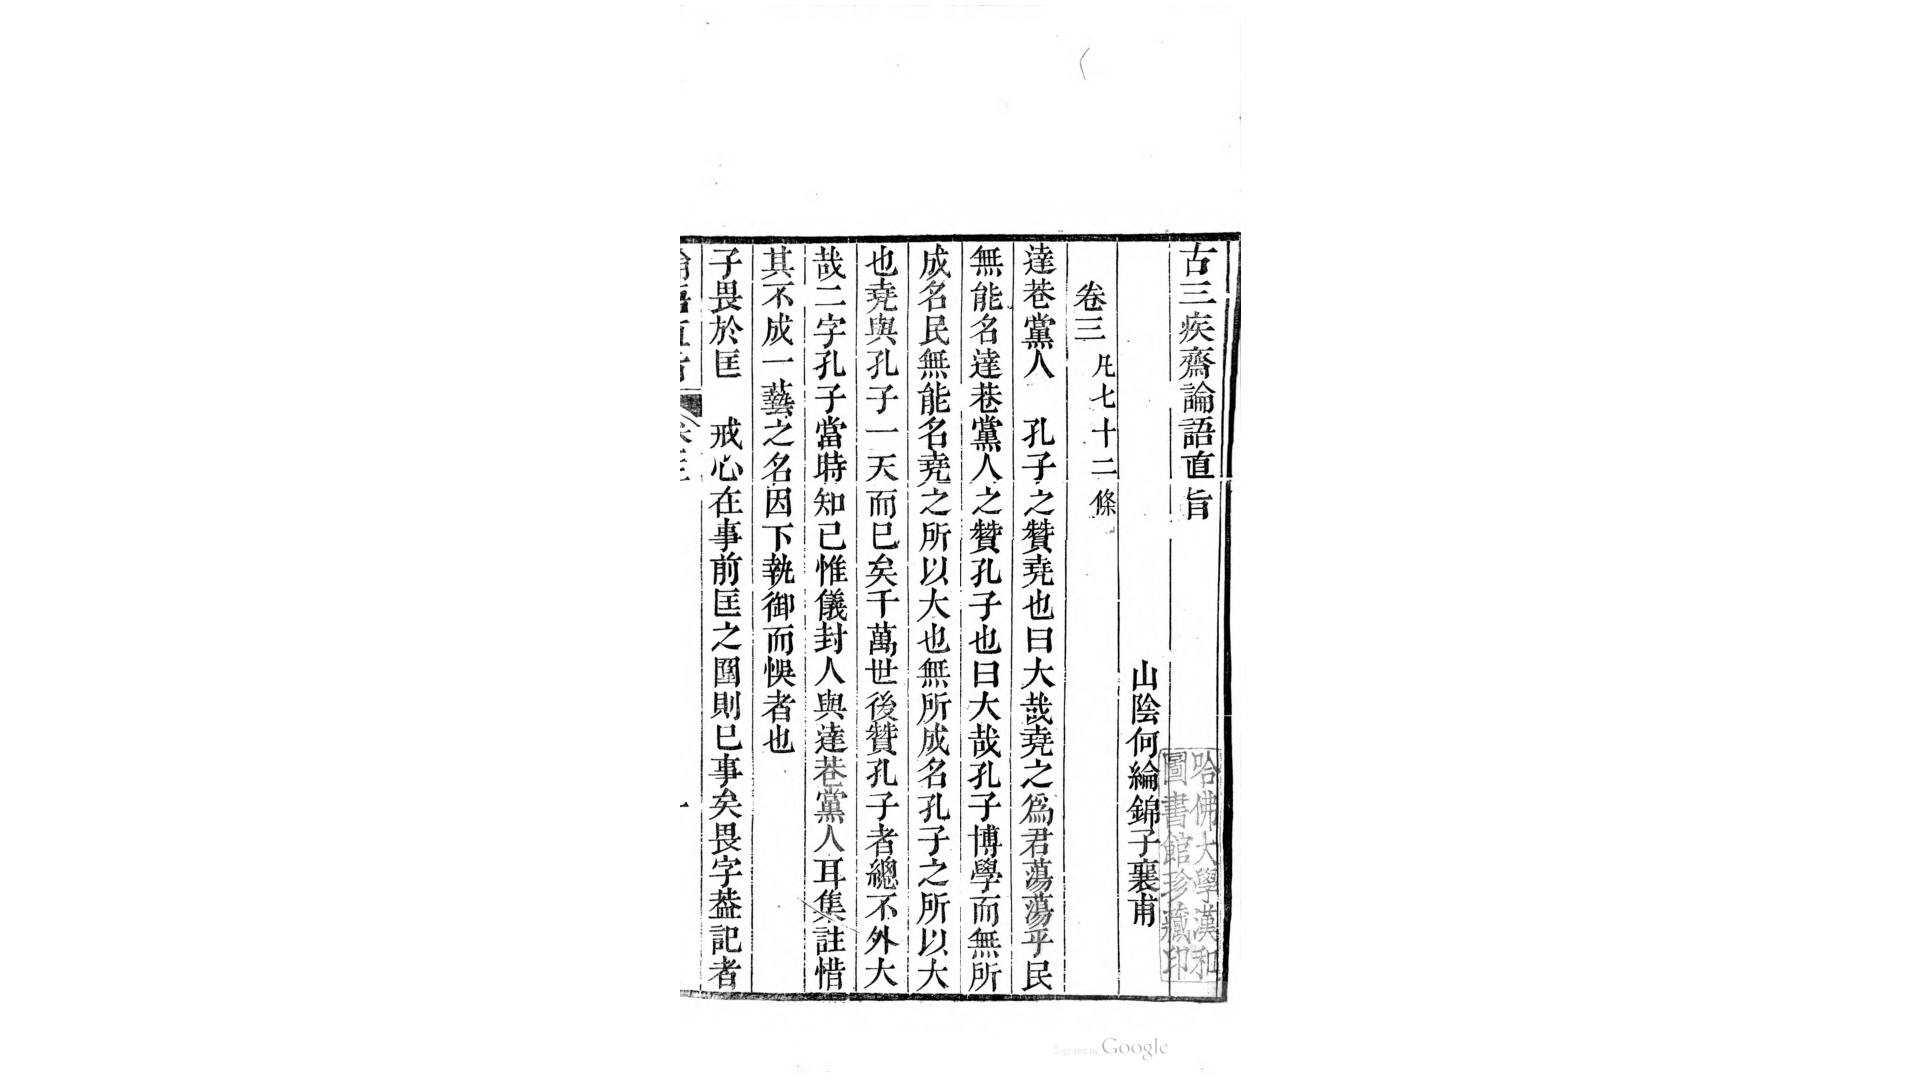 古三疾齋論語直旨
山陰何綸錦子襄甫
卷三 凡七十二條
達巷黨人　孔子之贊堯也曰大哉堯之為君蕩蕩乎民
無能名達巷黨人之贊孔子也曰大哉孔子博學而無所
成名民無能名堯之所以大也無所成名孔子之所以大
也堯與孔子一天而已矣千萬世後贊孔子者總不外大
哉二字孔子當時知已惟儀封人與達巷黨人耳集註惜
其不成一藝之名因下執御而悞者也
子畏於匡　戒心在事前匡之圍則已事矣畏字葢記者
論語直旨 卷三 一
哈佛大學漢和
圖書館珍藏印
Digitized by Google